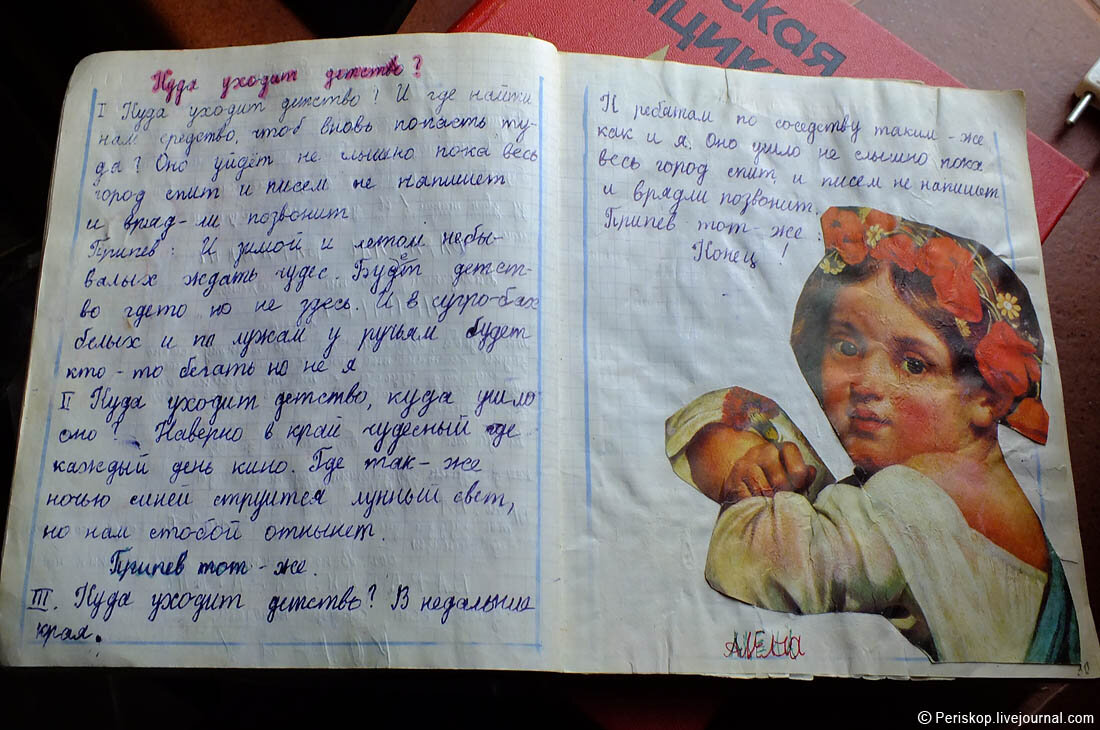 Куда уходит детство?
I Куда уходит детство! И где найти
нам средство, чтоб вновь попасть ту-
да? Оно уйдёт не слышно пока весь
город спит и писем не напишет
и вряд-ли позвонит
Припев: И зимой и летом небы-
валых ждать чудес. Будет детст-
во гдето но не здесь. И в сугро-бах
белых и по лужам у ручьям будет
кто-то бегать но не я
II Куда уходит детство, куда ушло
оно? Наверно в край чудесный где
каждый день кино. Где так-же
ночью синей струится лунный свет,
но нам стобой отнынет.
Припев тот-же.
III. Куда уходит детство? В недальние
края.
К ребятам по соседству таким-же
как и я. Оно ушло не слышно пока
весь город спит и писем не напишет
и врядли позвонит.
Припев тот-же.
Конец!
ская
нщик
© Periskop.livejournal.com